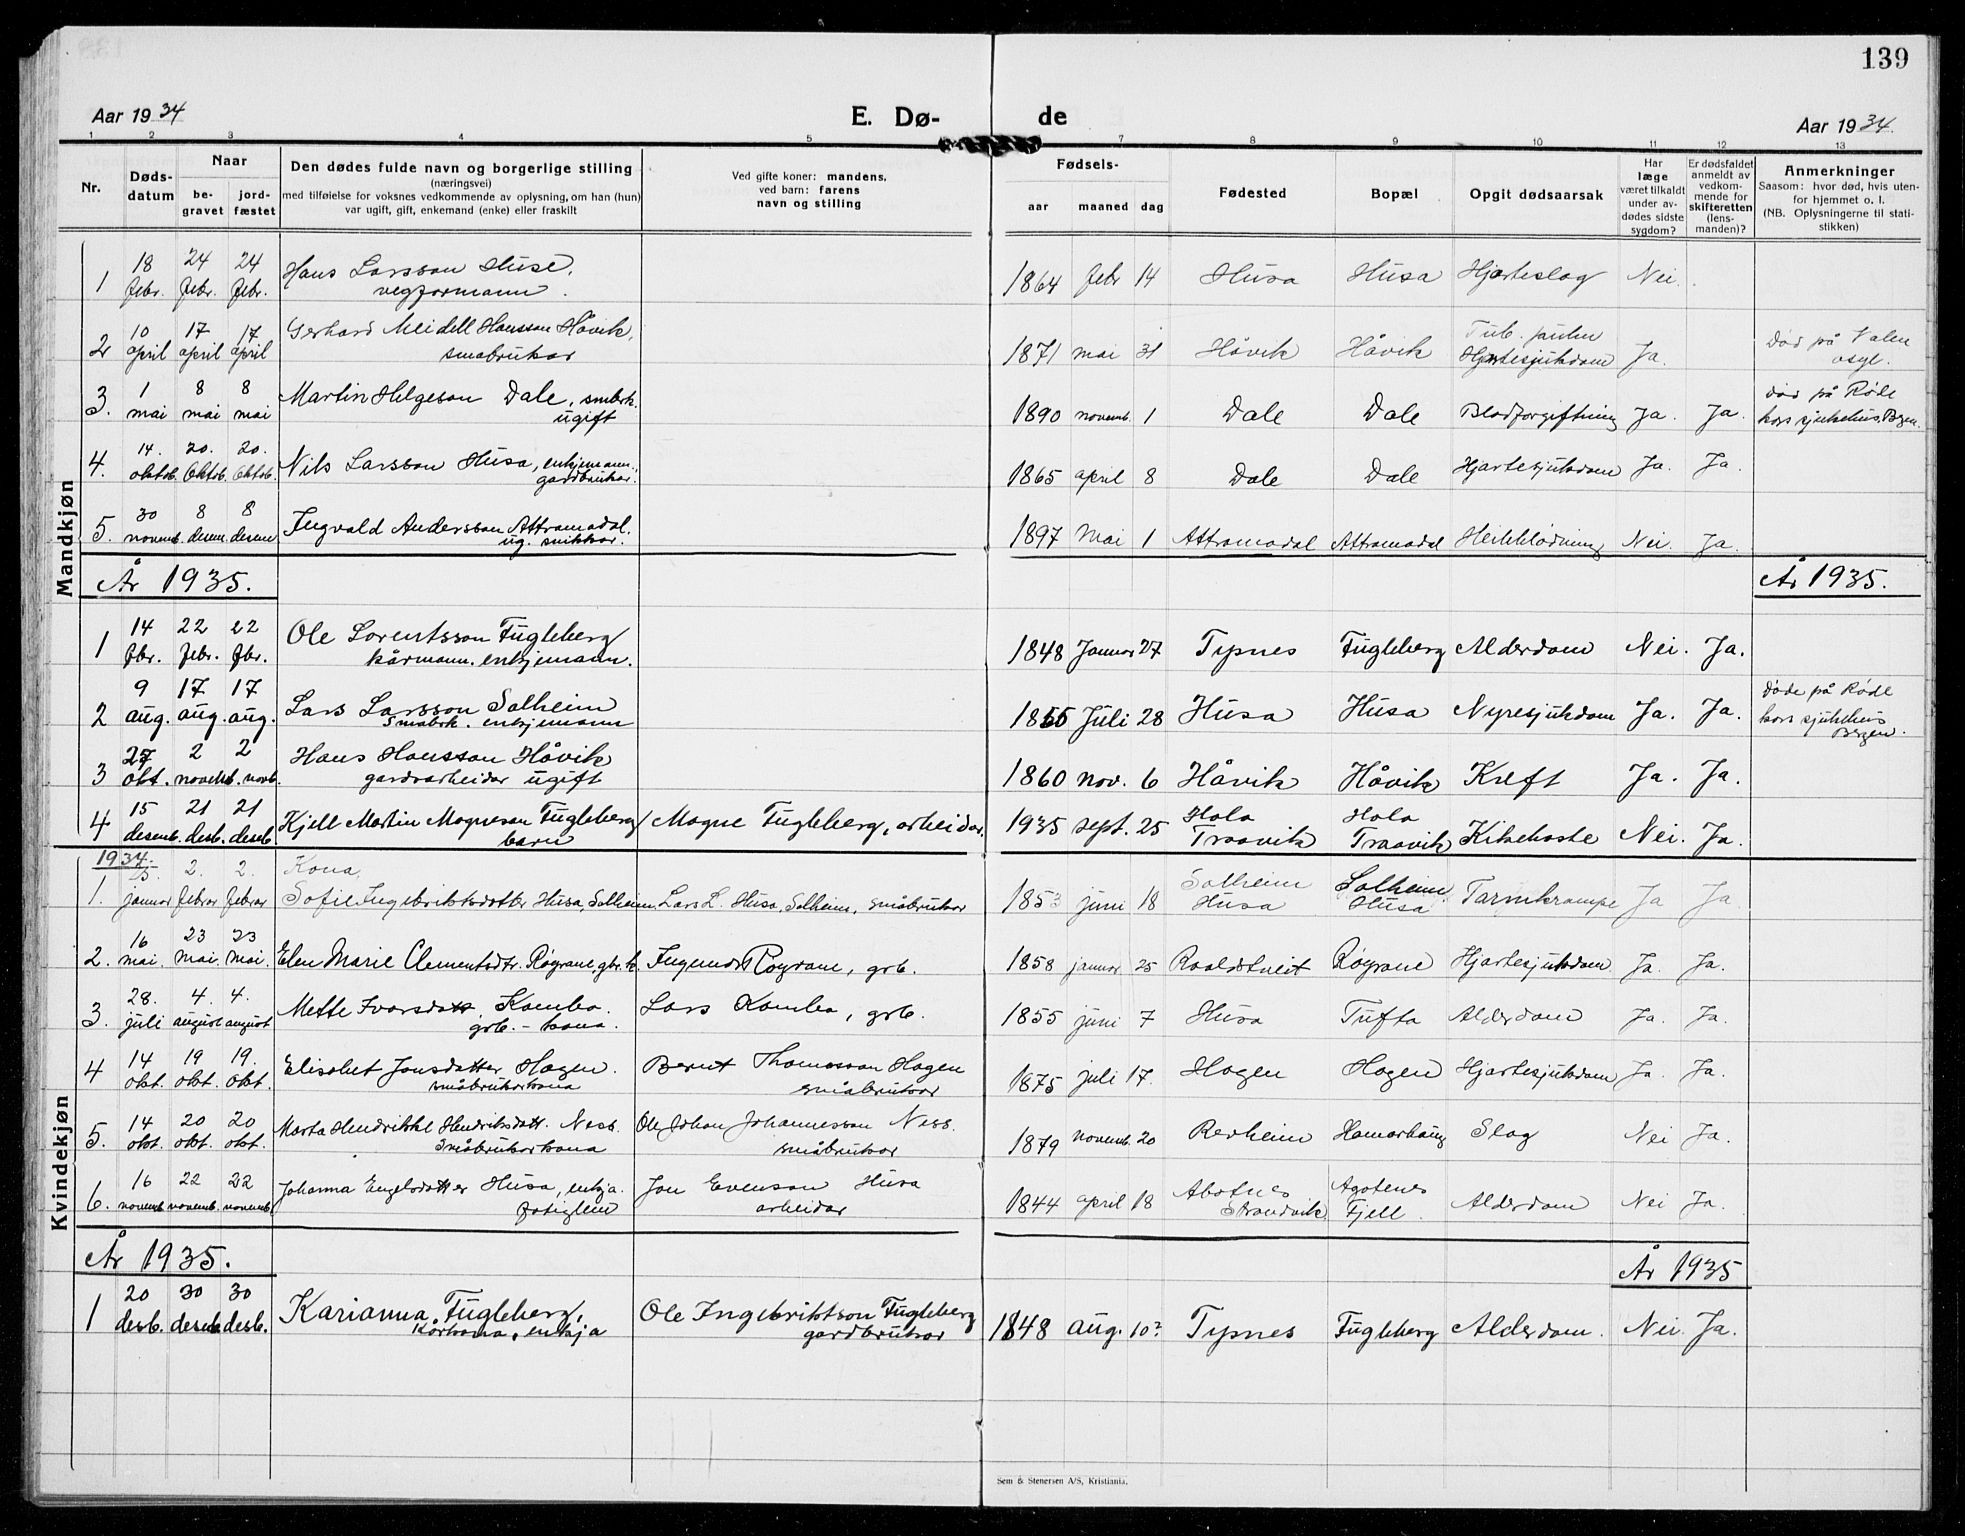 139
Aar 1934
E. Dø-
de
Aar 1934.
1 2 3 4 5 7 8 9 10 11 12 13
Nr.
Døds-
datum
Naar
be-
gravet
jord-
fæstet
Den dødes fulde navn og borgerlige stilling
(næringsvei)
med tilføielse for voksnes vedkommende av oplysning, om han (hun)
var ugift, gift, enkemand (enke) eller fraskilt
Ved gifte koner: mandens,
ved barn: farens
navn og stilling
Fødsels-
aar maaned dag
Fødested
Bopæl
Opgit dødsaarsak
Har
læge
været tilkaldt
under av-
dødes sidste
sygdom?
Er dødsfaldet
anmeldt av
vedkom-
mende for
skifteretten
(lens-
manden)?
Anmerkninger
Saasom: hvor død, hvis uten-
for hjemmet o. l.
(NB. Oplysningerne til stati-
stikken)
Mandkjøn
18 24 24 Hans Larsson Huse,
1 febr. febr. febr. vegformann. 1864 febr 14 Husa Husa Hjarteslag Nei.
10 17 17 Gerhard Meidell Hansson Håvik, Tub. pulm Død på Valen
2 april april april småbrukar 1871 mai 31 Håvik Håvik Hjartesjukdom Ja. asyl.
1 8 8 Martin Helgeson Dale, småbrk. død på Røde
3. mai mai mai ugift 1890 novemb. 1 Dale Dale Blodforgiftning Ja. Ja. kors sjukehus, Bergen.
14. 20. 20. Nils Larsson Husa, enkjemann.
4. oktob. Oktob. Oktob. gardbrukar. 1865 april 8 Dale Dale Hjartesjukdom Ja. Ja.
30 8 8 Ingvald Andersson Attramadal.
5. novemb. desem. desem ug. snikkar. 1897 Mai 1 Attramadal Attramadal Heilebløduing Nei. Ja.
År 1935. År 1935.
14 22 22 Ole Lorentsson Fugleberg
1 fbr. febr. fbr. kårmann. enkjemann. 1848 Januar 27 Typnes Fugleberg Alderdom Nei. Ja.
9 17 17 Lars Larsson Solheim Døde på Røde
2 aug. aug. aug. småbrk. enkjemann 1855 Juli 28 Husa Husa Nyresjukdom Ja. Ja. kors sjukehus
Bergen.
27 2 2 Hans Hansson Håvik
3 okt. novemb. novb. gardsarbeidar ugift 1860 nov. 6 Håvik Håvik Kreft Ja. Ja.
15 21 21 Kjell Martin Magneson Fugleberg Magne Fugleberg, arbeidar. Hola Hola
4 desemb. desb. desb. barn 1935 sept. 25 Traavik Traavik Kikehoste Nei. Ja.
Kvindekjøn
1934.
25. 2. 2. Kona, Solheim Solheim
1. januar febrar febrar Sofie Ingebriktsdatter Husa, Solheim Lars L. Husa, Solheim, småbrukar 1853 juni 18 Husa Husa Tarmkrampe Ja Ja
16 23 23
2. mai. mai. mai. Elen Marie Clementsdtr. Røyrane, gbr.k. Ingemar Røyrane, grb. 1858 januar 25 Roaldstveit Røyrane Hjartesjukdom Ja. Ja.
28. 4. 4. Mette Ivarsdatt. Kambo. Lars Kambo, grb.
3. juli august august grb. - kona. 1855 juni 7 Husa Tufta Alderdom Ja. Ja.
14 19 19. Elisabet Jonsdatter Hagen. Bernt Thomasson Hagen
4 okt. okt. okt. småbrukarkona småbrukar 1875 juli 17. Hagen Hagen Hjartesjukdom Ja. Ja.
14 20 20 Marta Hendrikke Hendriksdatt. Ness. Ole Johan Johannesson Ness.
5. okt. okt. okt. Småbrukarkona småbrukar 1879 novemb. 20 Rexheim Hamarhaug Slag Nei Ja.
16 22 22 Johanna Engelsdatter Husa, enkja. Jon Evenson Husa
6. novemb. novemb. novemb. fatiglem arbeidar 1844 april 18 Strandvik Fjell. Alderdom Nei Ja.
År 1935. År 1935
20 30 30 Karianna Fugleberg, Ole Ingebriktson Fugleberg
1 desb. desemb. desb. Kårkona, enkja gardbrukar 1848 aug. 10? Typnes Fugleberg Alderdom. Nei. Ja.
Sem & Stenersen A/S, Kristiania.